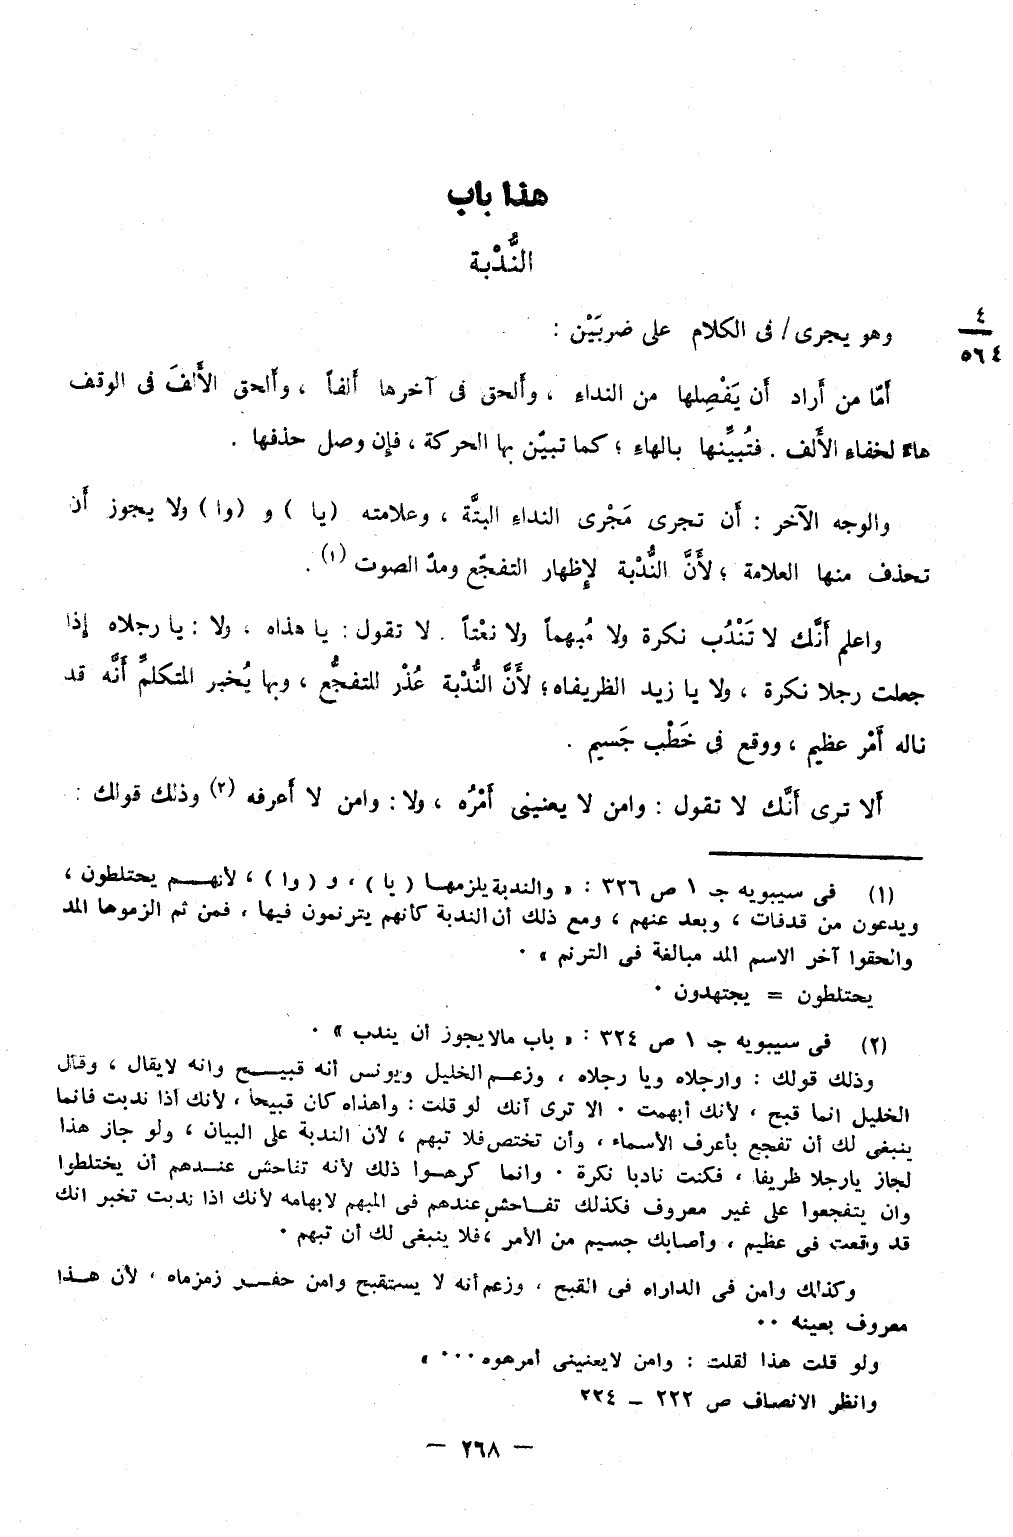 هذا باب
النُّدْبة
وهو يجرى / فى الكلام على ضربَيْن :
٤
٥٦٤
أَمّا من أَراد أَن يَفْصِلها من النداءِ ، وأَلحق فى آخرها أَلفاً ، وأَلحق الأَلفَ فى الوقف
هاءً لخفاءِ الأَلف . فتُبيِّنها بالهاءِ ؛ كما تبيّن بها الحركة ، فإِن وصل حذفها .
والوجه الآخر : أَن تجرى مَجْرى النداءِ البتَّة ، وعلامته (يا ) و (وا ) ولا يجوز أَن
تحذف منها العلامة ؛ لأَنَّ النُّدْبة لإِظهار التفجّع ومدّ الصوت (١) .
واعلم أَنَّك لا تَنْدُب نكرة ولا مُبهماً ولا نعْتاً . لا تقول : يا هذاه ، ولا : يا رجلاه إِذا
جعلت رجلا نكرة ، ولا يا زيد الظريفاه ؛ لأَنَّ النُّدْبة عُذْر للتفجُّع ، وبها يُخبر المتكلمِّ أَنَّه قد
ناله أَمْر عظيم ، ووقع فى خَطْب جَسيم .
أَلا ترى أَنَّك لا تقول : وامن لا يعنينى أَمْرُه ، ولا : وامن لا أَعرفه (٢) وذلك قولك :
(١) فى سيبويه جـ ١ ص ٣٢٦ : « والندبة يلزمها ( يا ) ، و ( وا ) ، لأنهم يحتلطون ،
ويدعون من قدفات ، وبعد عنهم ، ومع ذلك أن الندبة كأنهم يترنمون فيها ، فمن ثم الزموها المد
والحقوا آخر الاسم المد مبالغة فى الترنم » ٠
يحتلطون = يجتهدون ٠
(٢) فى سيبويه جـ ١ ص ٣٢٤ : « باب مالا يجوز أن يندب » ٠
وذلك قولك : وارجلاه ويا رجلاه ، وزعم الخليل ويونس أنه قبيح وانه لا يقال ، وقال
الخليل انما قبح ، لأنك أبهمت ٠ الا ترى أنك لو قلت : واهذاه كان قبيحا ، لأنك أذا ندبت فانما
ينبغى لك أن تفجع بأعرف الأسماء ، وأن تختص فلا تبهم ، لأن الندبة على البيان ، ولو جاز هذا
لجاز يارجلا ظريفا ، فكنت نادبا نكرة ٠ وانما كرهوا ذلك لأنه تفاحش عندهم أن يختلطوا
وان يتفجعوا على غير معروف فكذلك تفاحش عندهم فى المبهم لابهامه لأنك اذا ندبت تخبر انك
قد وقعت فى عظيم ، وأصابك جسيم من الأمر ، فلا ينبغى لك أن تبهم ٠
وكذلك وامن فى الداراه فى القبح ، وزعم أنه لا يستقبح وامن حفر زمزماه ، لأن هذا
معروف بعينه ٠٠
ولو قلت هذا لقلت : وامن لا يعنينى أمرهوه ٠٠٠ »
وانظر الانصاف ص ٢٢٢ – ٢٢٤
– ٢٦٨ –